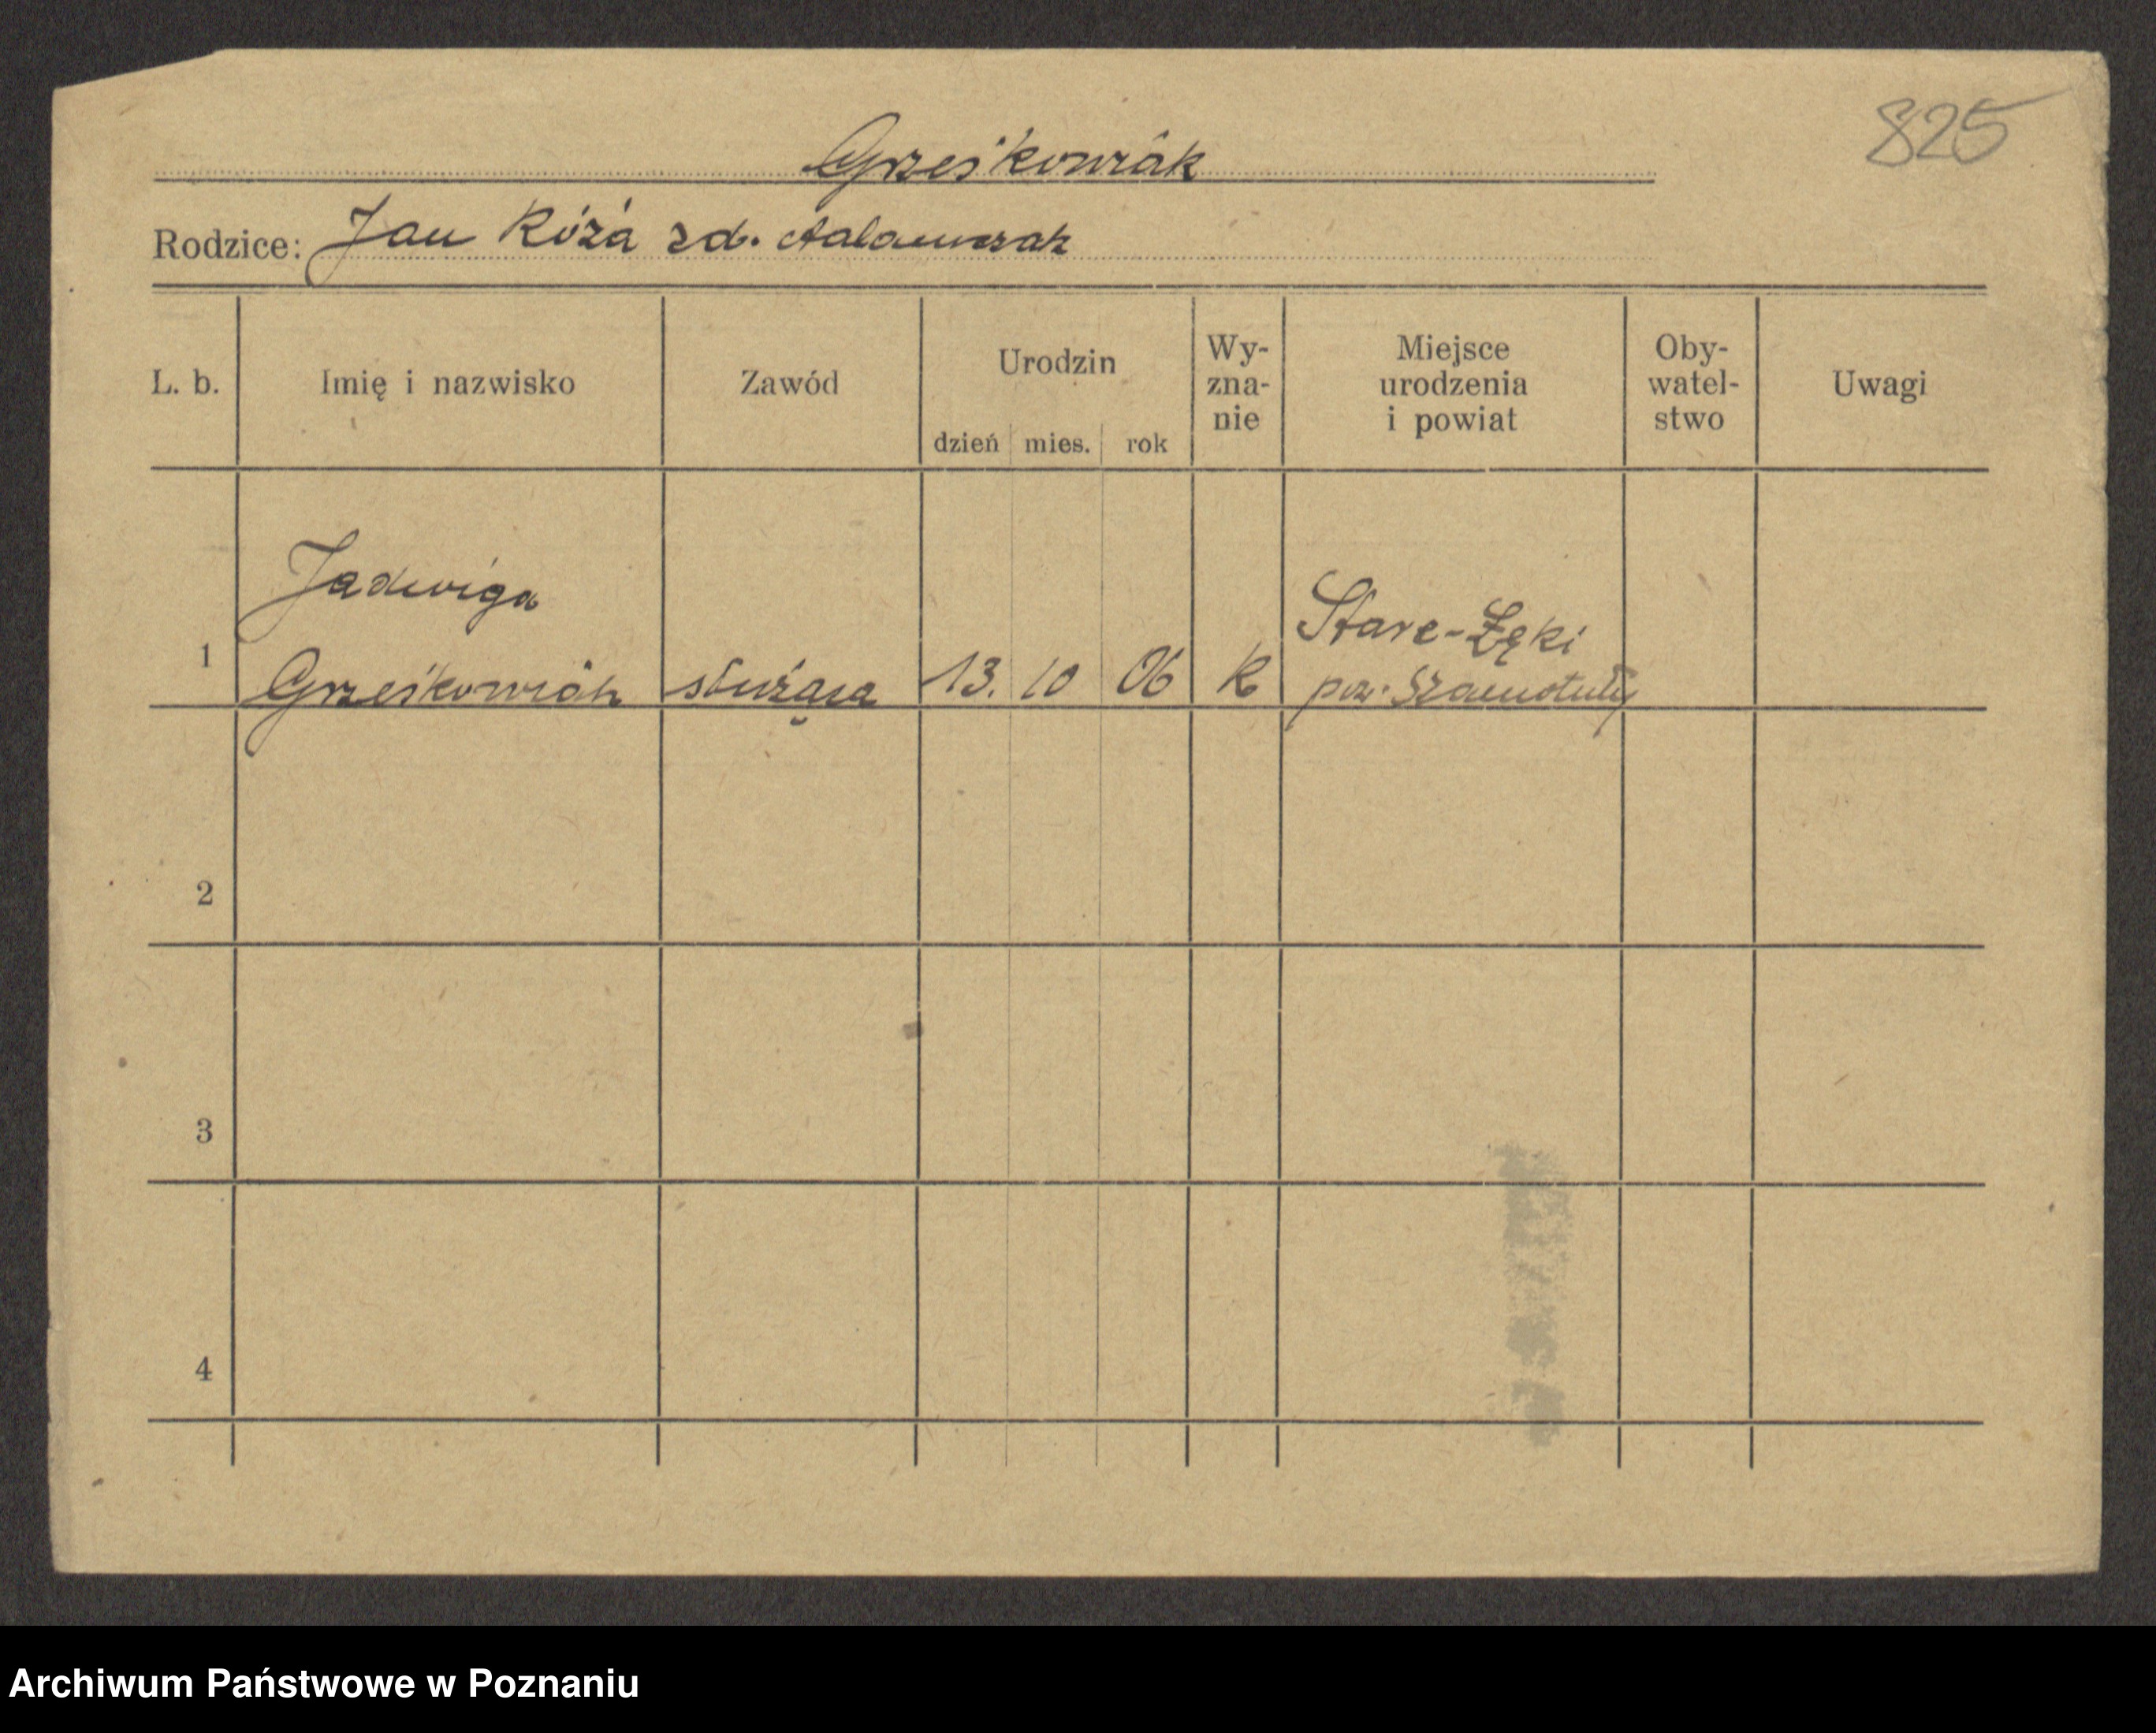 825
Grześkowiak
Rodzice: Jan Róża zd. Adamczak
L. b. Imię i nazwisko Zawód Urodzin dzień mies. rok Wy-zna-nie Miejsce urodzenia i powiat Oby-watel-stwo Uwagi
Jadwiga
1 Grześkowiak służąca 13. 10 06 K Stare-Łęki
pow. Szamotuły
2
3
4
Archiwum Państwowe w Poznaniu